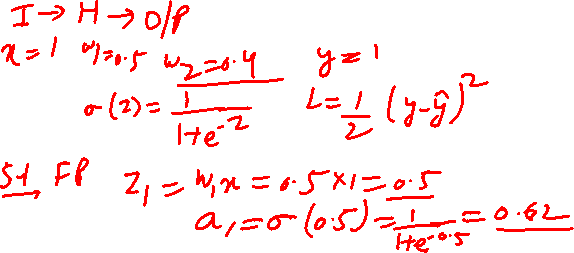 I → H → O/P
x = 1 w₁ = 0.5 w₂ = 0.4 y = 1
σ(z) = 1/(1+e^-z) L = 1/2 (y-ŷ)²
S-1, FP z₁ = w₁x = 0.5×1 = 0.5
a₁ = σ(0.5) = 1/(1+e^-0.5) = 0.62